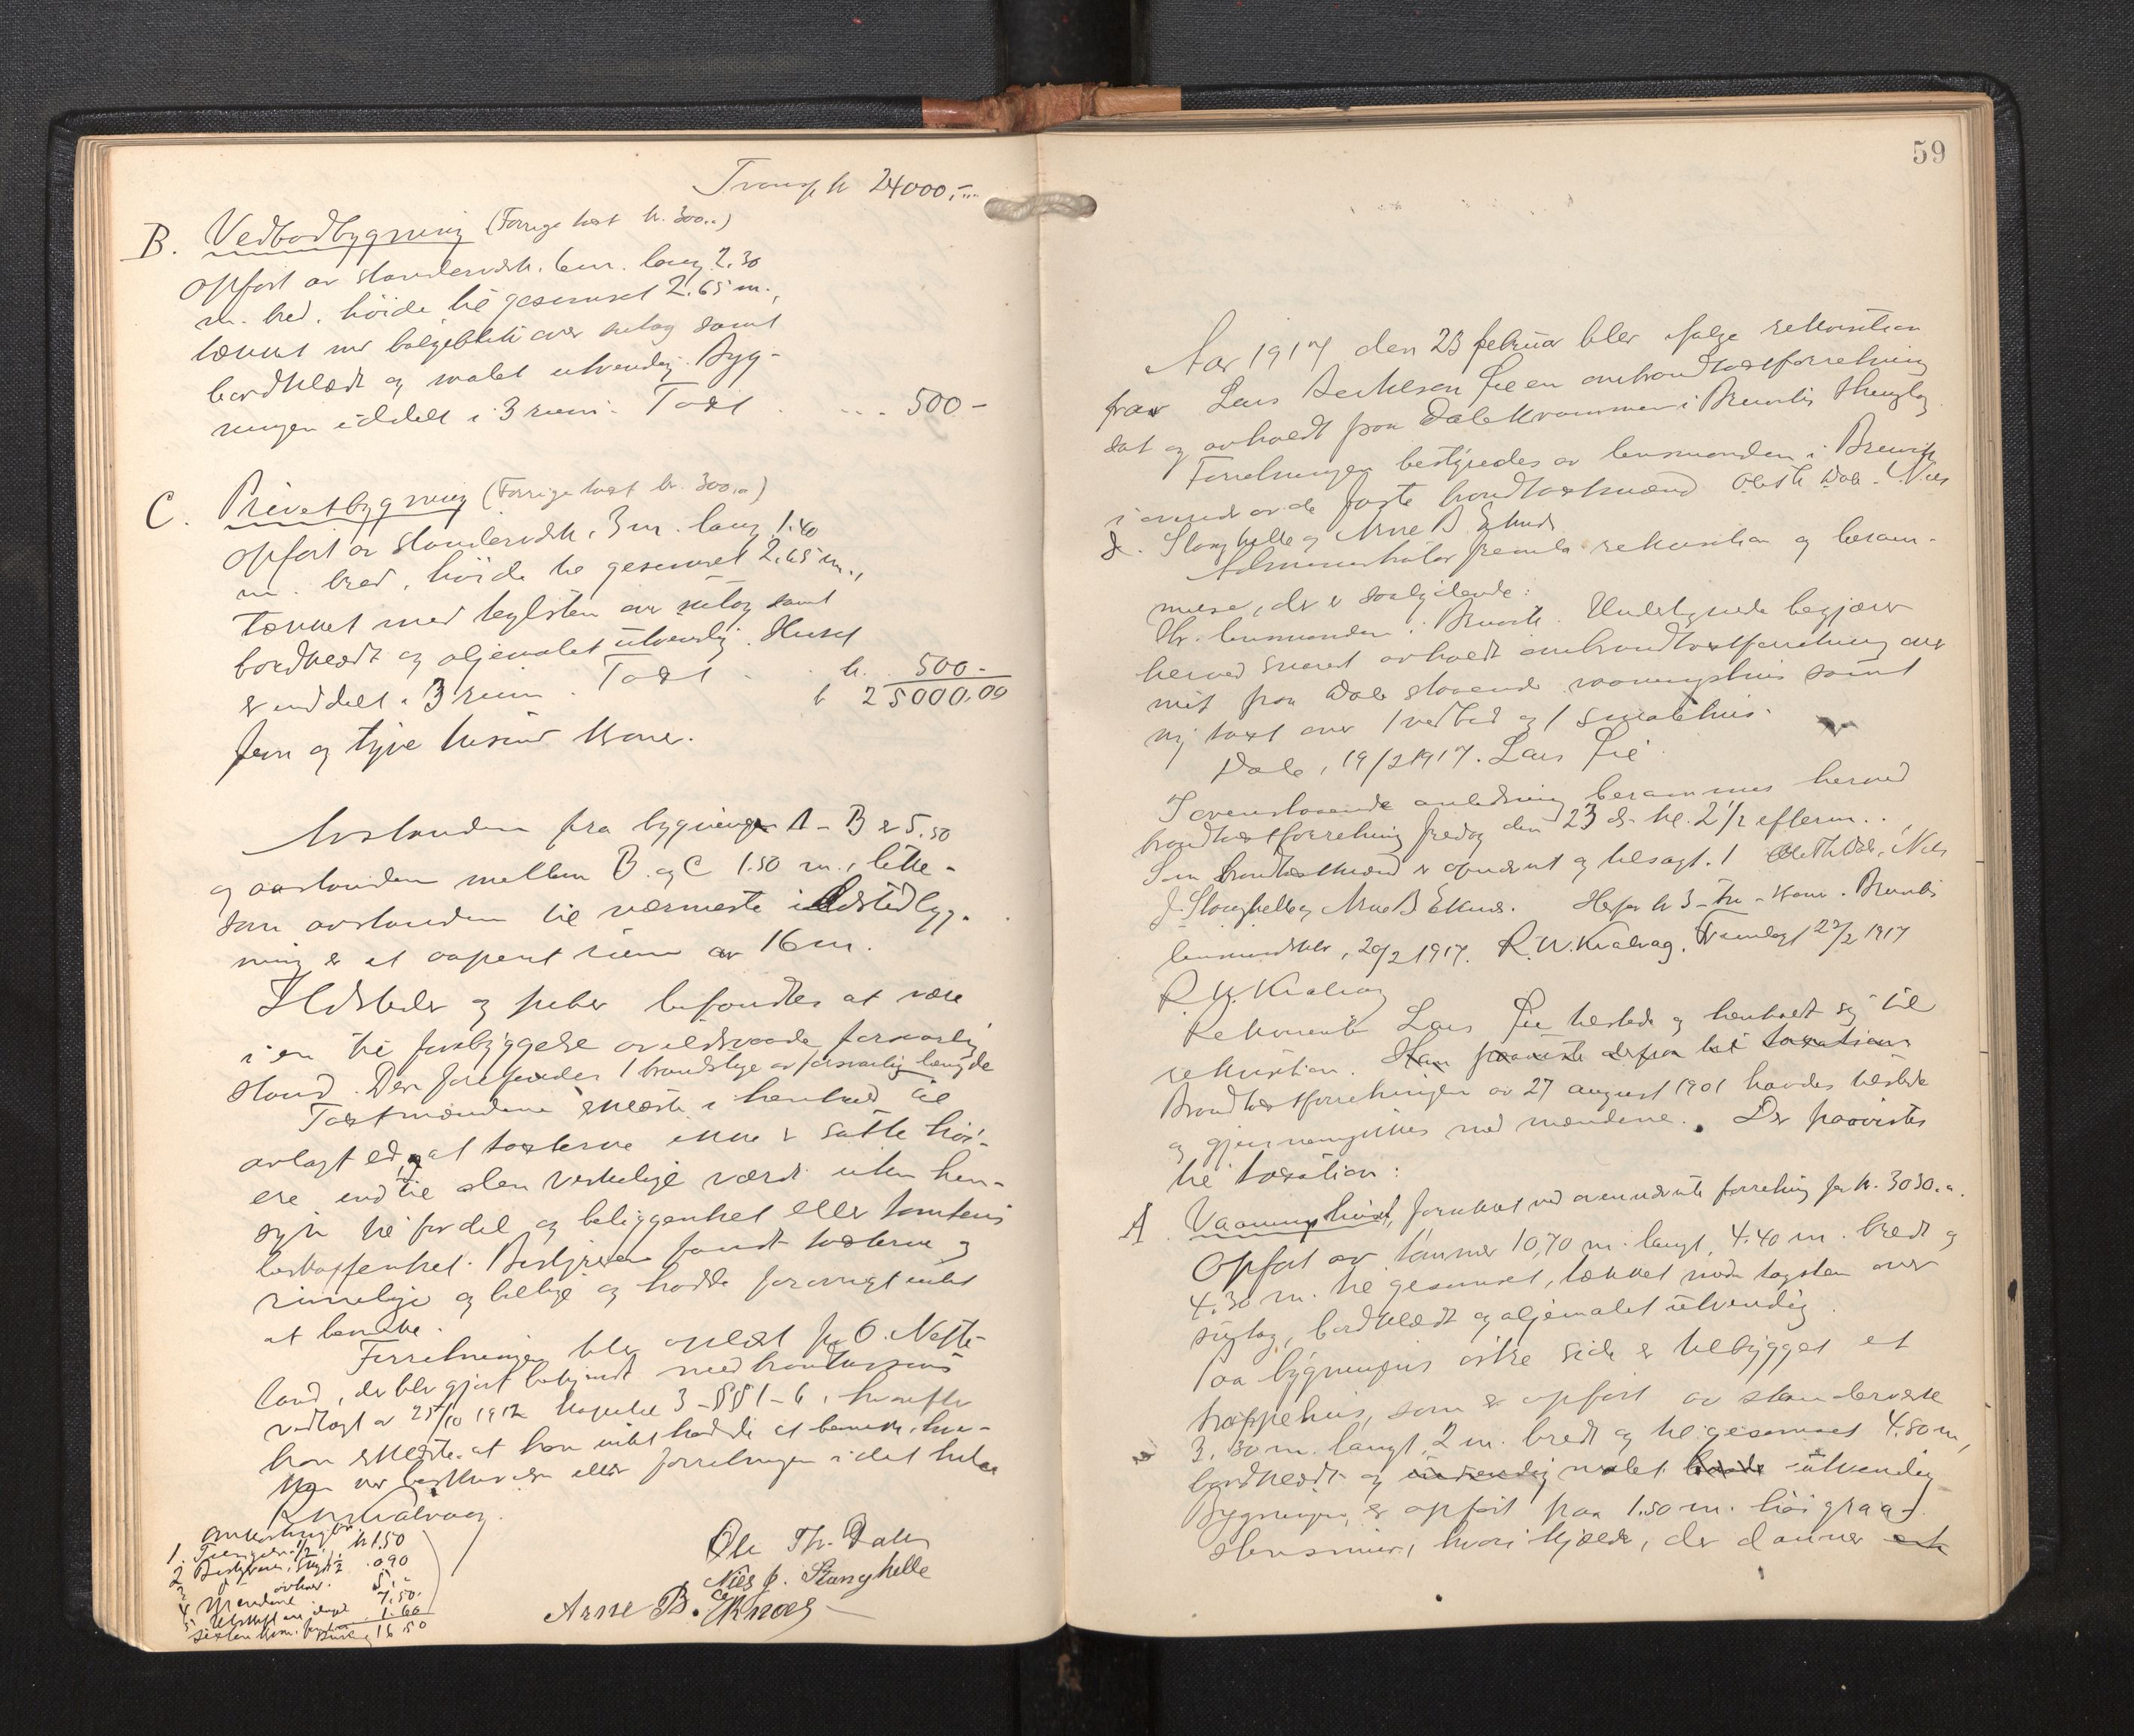 Transp. kr 24000,-
B. Vedbodbygning (Forrige takst kr. 300..)
opført av standerverk, 6 m. lang 2.30
m. bred, høide til gesemset 2.65 m.,
tækket med bølgeblik over sutag samt
bordklædt og malet utvendig. Byg-
ningen inddelt i 3 rum. Takst . . ... 500 -
C. Privetbygning (Forrige takst kr. 300..)
opført av standerverk, 3 m. lang 1.40
m. bred, høide til gesemset 2.65 m.,
tækket med teglsten over sutag samt
bordklædt og oljemalet utvendig. Huset
er inddelt i 3 rum. Takst . . kr. 500 -
kr 25000,00
fem og tyve tusind kroner.
Avstanden fra bygningen A - B er 5.50
og avstanden mellem B. og C 1.50 m., like-
som avstanden til nærmeste ildstedbyg-
ning er et aapent rum av 16 m.
Ildsteder og piber befandtes at være
i en til forebyggelse av ildsvaade forsvarlig
stand. Der forefindes 1 brandstige av forsvarlig længde
Takstmændene erklærte i henhold til
avlagt ed, at taksterne ikke er satte høi-
ere end til den virkelige værdi uten hen-
syn til fordel og beliggenhet eller tomtens
beskaffenhet. Bestyreren fandt taksterne
rimelige og billige og hadde forøvrigt intet
at bemerke.
Forretningen blev oplæst for O. Neste-
land, der blev gjort bekjendt med brandkassens
vedtægt av 25/10 1912 kapitel 3 - §§ 1 - 6, hvorefter
han erklærte at han intet hadde at bemerke, hver-
ken ver beskrivelse eller forretningen i det hele
R. W. Kvalvaag.
Ole Th. Dale
Nils J. Stanghelle
Arne B. Eknes
1. kr 1.50
2. 0.90
3. 5.-
4. Mændene 7.50
5. 1.60
16.50
59
Aar 1917 den 23 februar blev ifølge rekvisition
fra Lars Fie en ombrandtakstforretning
sat og avholdt paa Dale kvammen i Bruvik thinglag
Forretningen bestyredes av lensmanden i Bruvik
i overvær av de faste brandtakstmænd Ole Th. Dale, Nils
J. Stanghelle og Arne B. Eknes
Administrator fremla rekvisition og beram-
melse, der er saalydende:
Hr. lensmanden i Bruvik. Undertegnede begjærer
herved snarest avholdt ombrandtakstforretning over
mit paa Dale staaende vaaningshus samt
ny takst over 1 vedbod og 1 smalehus.
Dale, 19/2 1917. Lars Fie
I ovenstaaende anledning berammes herved
brandtakstforretning fredag den 23 ds. kl. 2 1/2 efterm..
Som brandtakstmænd er opnævnt og tilsagt. Ole Th. Dale, Nils
J. Stanghelle og Arne B Eknes. Herfor kr 3 - tre - kroner. Bruvik
lensmandsktr, 20/2 1917. R. W. Kvalvaag. Fremlagt 23/2 1917
R. W. Kvalvaag
Rekvirenten Lars Fie tilstede og henholdt sig til
rekvisition. Han paaviste derpaa til taxation
Brandtakstforretningen av 27 august 1901 havdes tilstede
og gjennemgikkes med mændene. Der paavistes
til taxation:
A. Vaaningshuset, forrettet ved ovennævnte forretning for kr. 3030..
Opført av tømmer 10,70 m. langt, 4.40 m. bredt og
4.30 m. til gesemset, tækket med tagsten over
sutag, bordklædt og oljemalet utvendig.
Paa bygningens østre side er tilbygget et
trappehus, som er opført av standerverk
3.30 m. langt, 2 m. bredt og til gesemset 4.80 m,
bordklædt og indvendig malet utvendig
Bygningen er opført paa 1.50 m. høi graa-
stensmur, hvori kjælder, der danner